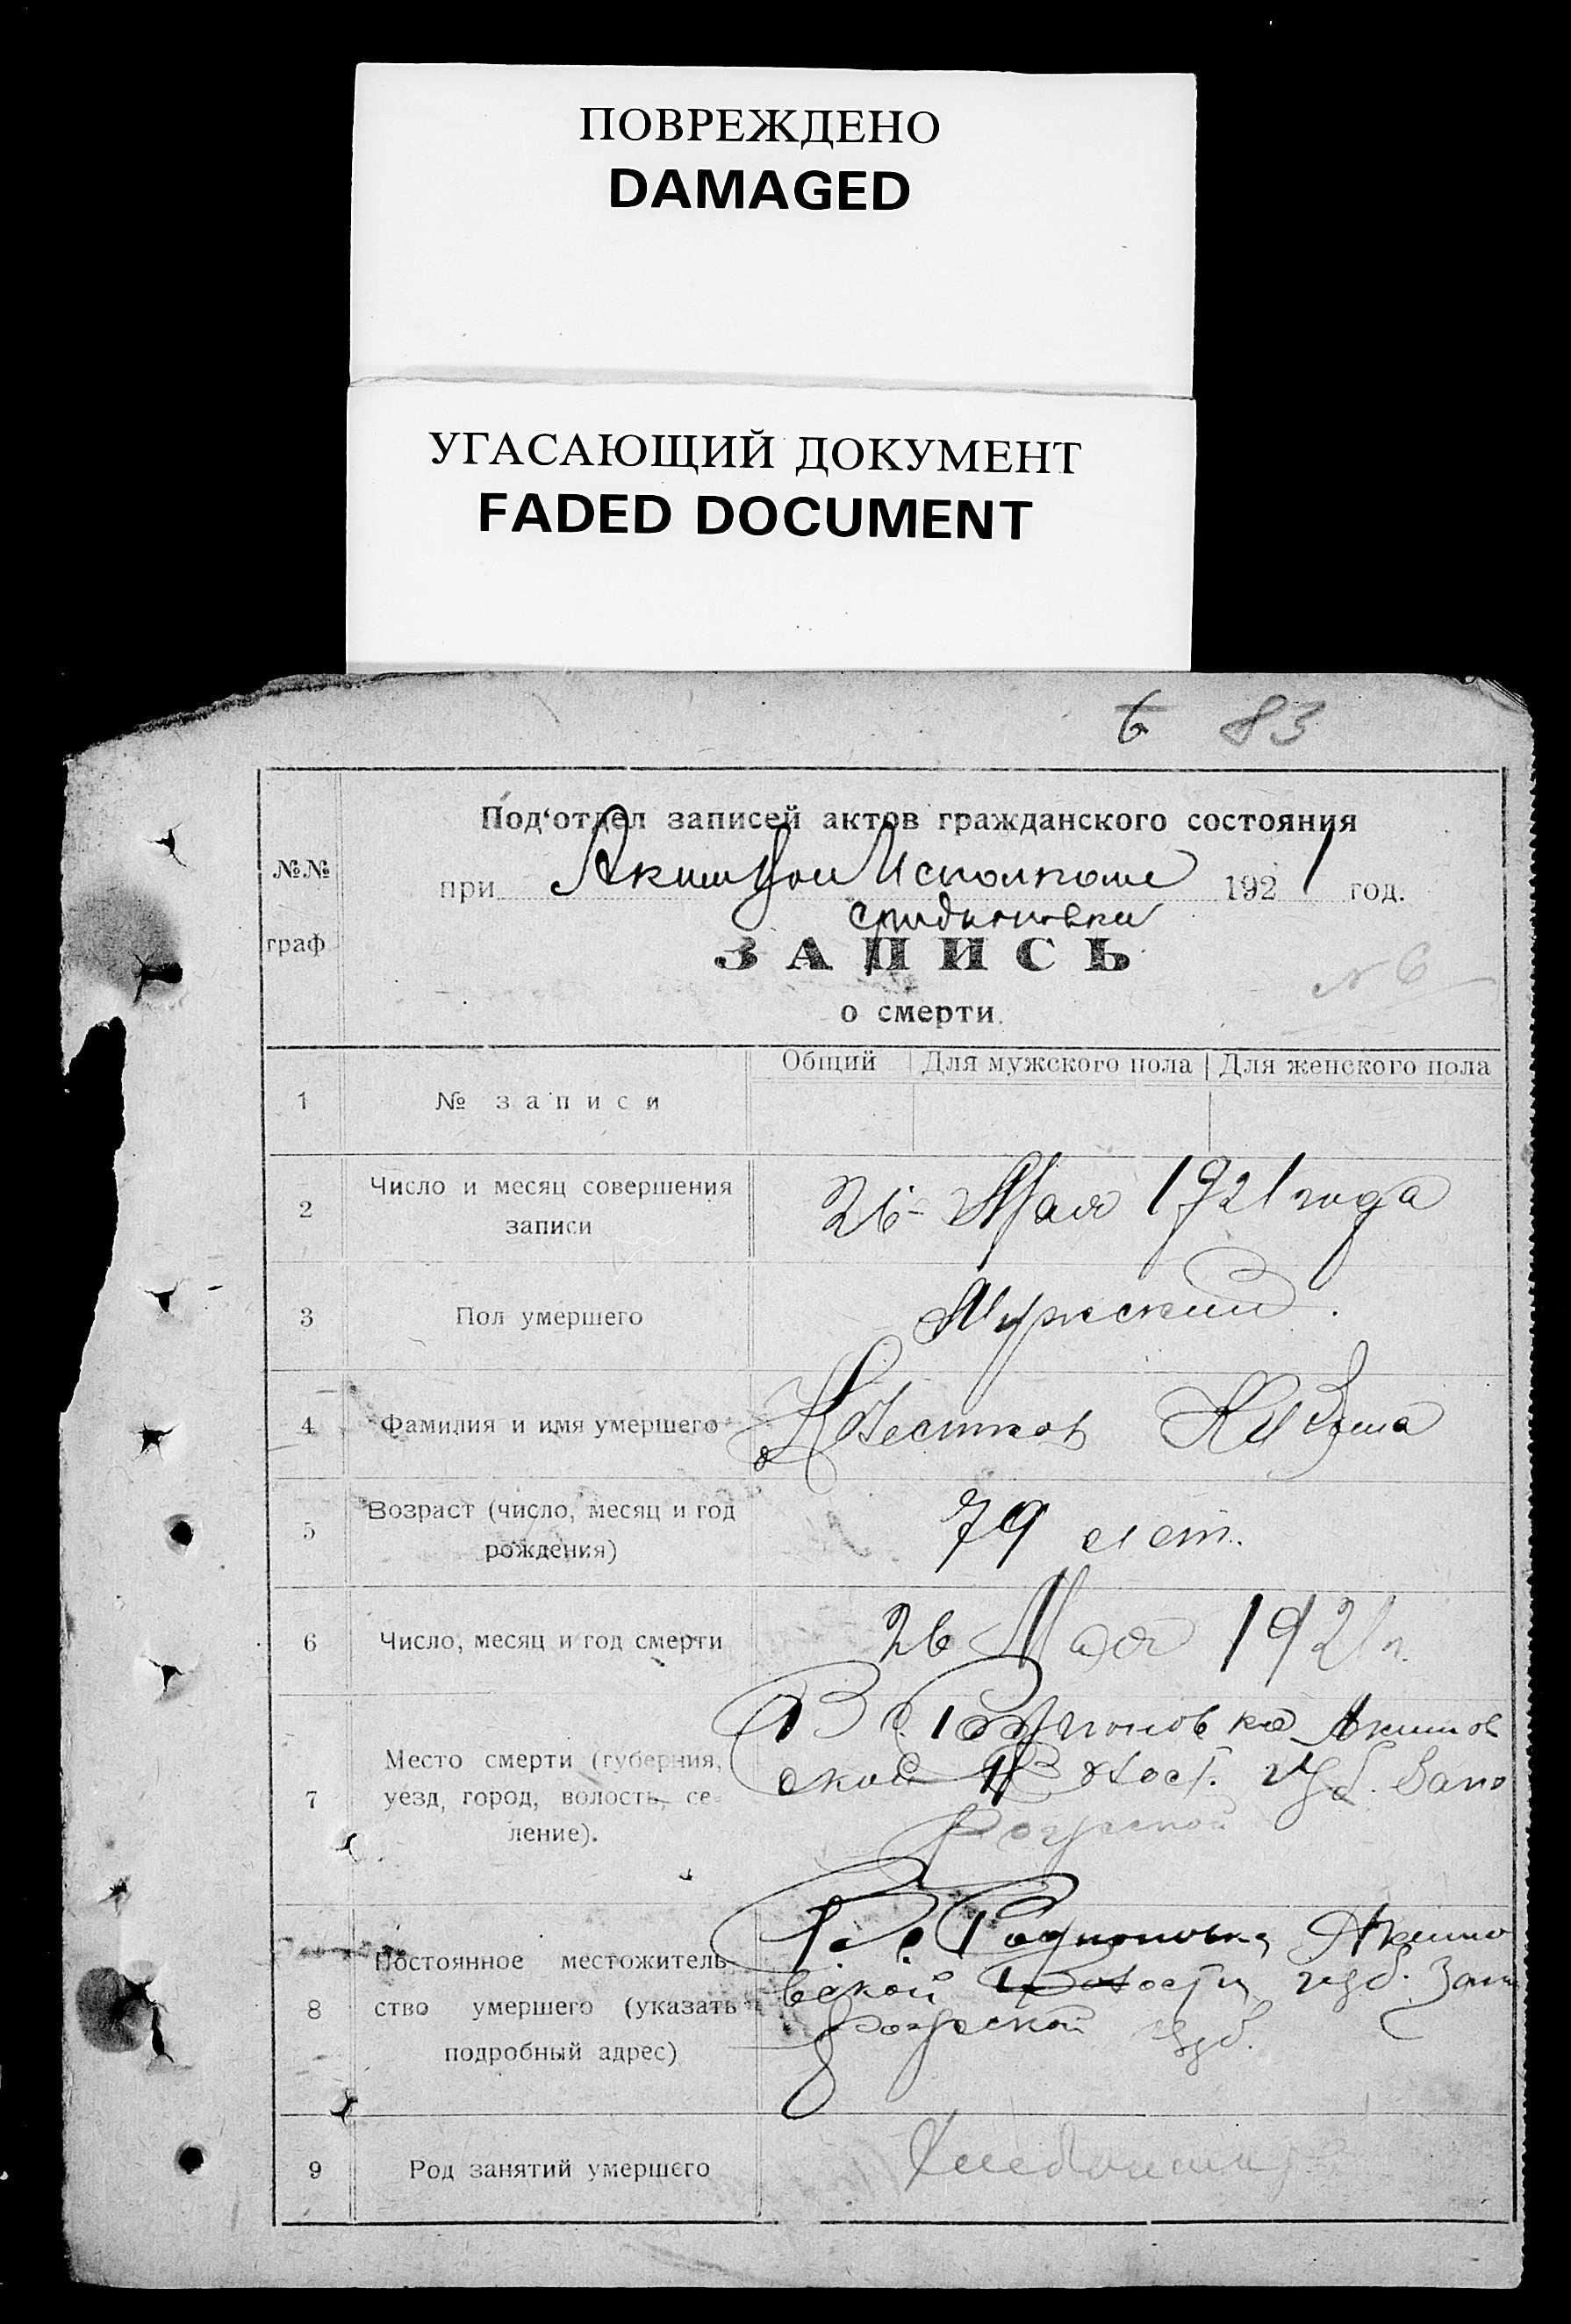 ПОВРЕЖДЕНО
DAMAGED
УГАСАЮЩИЙ ДОКУМЕНТ
FADED DOCUMENT
6 83
Под‘отдел записей актов гражданского состояния
№№ граф
при Исполкоме 1921 год.
ЗАПИСЬ
№ 6
о смерти.
Общий Для мужского пола Для женского пола
1 № записи
2 Число и месяц совершения записи
26 Мая 1921 года
3 Пол умершего
Мужский.
4 Фамилия и имя умершего
Кузьма
5 Возраст (число, месяц и год рождения)
79 лет.
6 Число, месяц и год смерти
26 Мая 1921 г.
7 Место смерти (губерния, уезд, город, волость, селение).
В с. Родионовка Акимов
ской Волост. губ. Запо
рожской
8 Постоянное местожительство умершего (указать подробный адрес)
В с. Родионовка Акимо
вской Волости губ. Запо
рожской губ.
9 Род занятий умершего